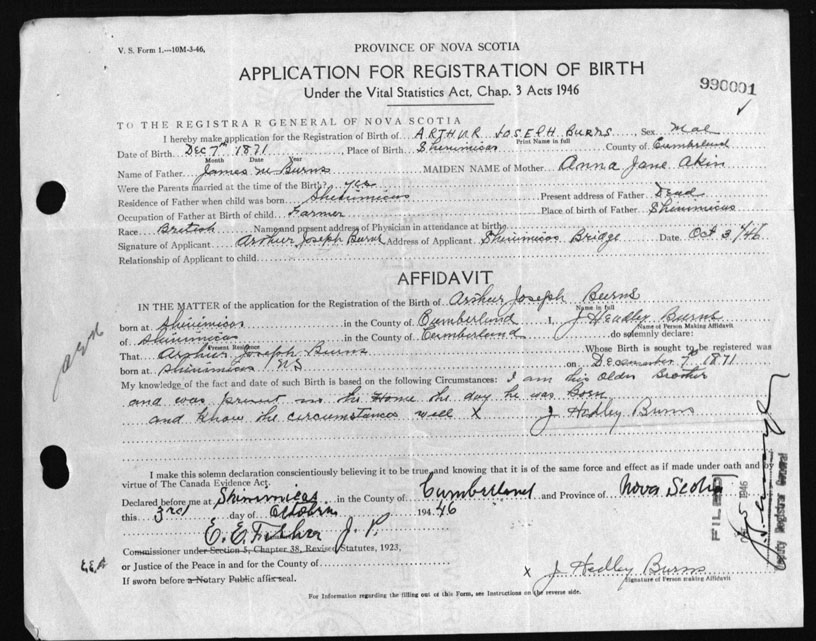 V. S. Form 1.—10M-3-46.
PROVINCE OF NOVA SCOTIA
APPLICATION FOR REGISTRATION OF BIRTH
990001
Under the Vital Statistics Act, Chap. 3 Acts 1946
TO THE REGISTRAR GENERAL OF NOVA SCOTIA
I hereby make application for the Registration of Birth of ARTHUR JOSEPH BURNS, Sex Male
Print Name in full
Date of Birth Dec 7th 1871, Place of Birth Shinimicas County of Cumberland
Month Date Year
Name of Father James W Burns MAIDEN NAME of Mother Anna Jane Akin
Were the Parents married at the time of the Birth? yes
Residence of Father when child was born Shinimicas Present address of Father Dead
Occupation of Father at Birth of child Farmer Place of birth of Father Shinimicas
Race British Name and present address of Physician in attendance at birth
Signature of Applicant Arthur Joseph Burns Address of Applicant Shinimicas Bridge Date Oct 3/46
Relationship of Applicant to child
AFFIDAVIT
IN THE MATTER of the application for the Registration of Birth of Arthur Joseph Burns
Name in full
born at Shinimicas in the County of Cumberland I, J Hedley Burns
Name of Person Making Affidavit
of Shinimicas in the County of Cumberland do solemnly declare:
Present Residence
That Arthur Joseph Burns Whose Birth is sought to be registered was
born at Shinimicas NS on December 7th 1871
My knowledge of the fact and date of such Birth is based on the following Circumstances: I am his older Brother
and was present in the Home the day he was born
and know the circumstances well X J Hedley Burns
I make this solemn declaration conscientiously believing it to be true and knowing that it is of the same force and effect as if made under oath and by
virtue of The Canada Evidence Act.
Declared before me at Shinimicas in the County of Cumberland and Province of Nova Scotia
this 3rd day of October 194 46
E. E. Fisher J. P.
Commissioner under Section 5, Chapter 38, Revised Statutes, 1923,
or Justice of the Peace in and for the County of
E.E.F
If sworn before a Notary Public affix seal.
X J Hedley Burns
Signature of Person making Affidavit
FILED
1946
Deputy Registrar General
For Information regarding the filling out of this Form, see Instructions on the reverse side.